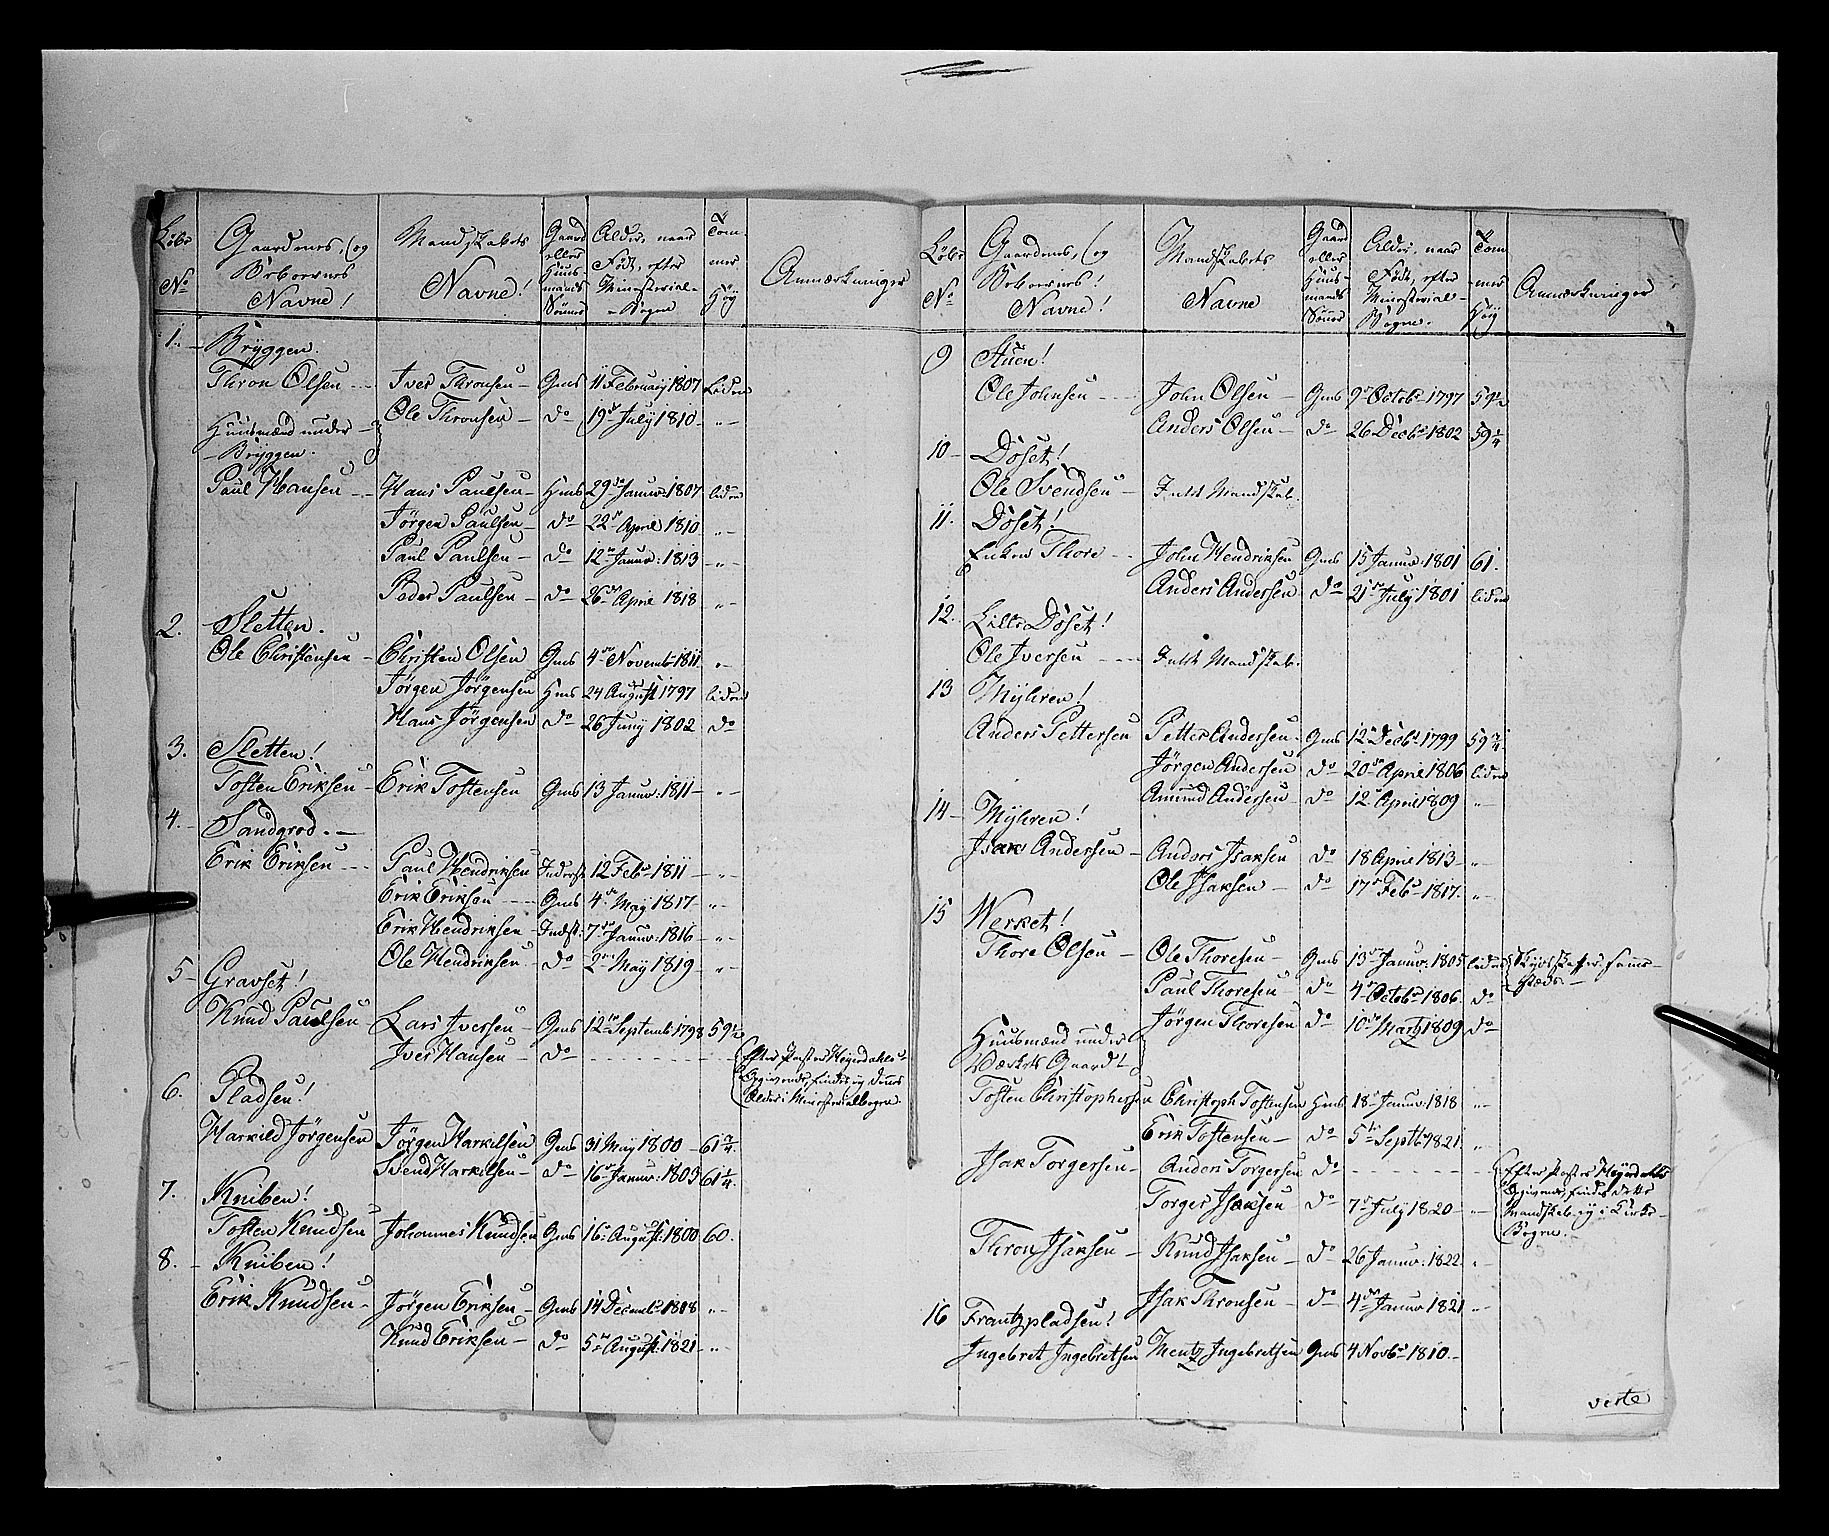 Løbe No
Gaardenes, (og Beboernes Navne!
Mandskabets Navne!
Gaard eller Huus-mands Sønner
Alder, naar Født, efter Ministerial-Bogen
Tom-mer Høy
Anmærkninger
1. Bryggen.
Thron Olsen Iver Thronsen Gms 11 February 1807 Liden
Ole Thronsen do 19de July 1810 "
Huusmænd under Bryggen.
Paul Hansen Hans Paulsen Hms 29de Januar 1807 liden
Jörgen Paulsen do 22de April 1810 "
Paul Paulsen do 12te Januar: 1813 "
Peder Paulsen do 26de April 1818 "
2. Sletten.
Ole Christensen Christen Olsen Gms 4de Novembr 1811 "
Jörgen Jörgensen Hms 24 August 1797 liden
Hans Jörgensen do 26 Juny 1802 do
3. Sletten!
Tosten Eriksen Erik Tostensen Gms 13 Januar: 1811 "
4. Sandgrod.
Erik Eriksen Paul Hendriksen Inderst. 12 Febr 1811 "
Erik Eriksen Gms 4de May 1817 "
Erik Hendriksen Indst. 7de Januar: 1816 "
Ole Hendriksen do 2den May 1819 "
5 Gravset!
Knud Paulsen Lars Iversen Gms 12te Septemb 1798 59 1/2
Iver Hansen do
Efter Pastor Heyerdahls Opgivende, findes ey dennes Alder i Ministerialbogen
6. Pladsen!
Harkild Jörgensen Jörgen Harkilsen Gms 31 May 1800 61 3/4.
Svend Harkilsen do 16de Januar: 1803 61 1/4.
7. Kniben!
Tosten Knudsen Johannes Knudsen Gms 16 August: 1800 60.
8. Kniben!
Erik Knudsen Jörgen Eriksen Gms 14 Decembr 1818 "
Knud Eriksen do 5te August: 1821 "
Løbe No
Gaardenes, (og Beboernes! Navne!
Mandskabets Navne
Gaard eller Huus-mands Sønner
Alder, naar Født, efter Ministerial-Bogen.
Tom-mer Høy
Anmærkninger
9 Stuen!
Ole Johnsen John Olsen Gms 9de Octobr 1797 59 1/2
Anders Olsen do 26 Decbr 1802 59 1/4
10 Döset!
Ole Svendsen Intet Mandskab.
11. Döset!
Enken Thore John Hendriksen Gms 15 Januar: 1801 61.
Anders Andersen do 21de July 1801 liden
12. Lille Döset!
Ole Iversen Intet Mandskab.
13 Myhren!
Anders Pettersen Petter Andersen Gms 12te Decbr 1799 59 3/4
Jörgen Andersen do 20de April 1806 liden
Amund Andersen do 12te April 1809 "
14 Myhren!
Isak Andersen Anders Isaksen do 18 April 1813 "
Ole Isaksen do 17de Febr 1817. "
15 Werket!
Thore Olsen Ole Thoresen Gms 13de Januar: 1805 liden Skydskaffer sammesteds.
Paul Thoresen do 4de Octobr 1806. do
Jörgen Thoresen do 10de Martz 1809 do
Huusmænd under Værkets Gaard!
Tosten Christophersen Christoph Tostensen Hms 18de Januar: 1818 "
Erik Tostensen do 5te Septbr 1821 "
Isak Torgersen Anders Torgersen do
Efter Pastor Heyerdahls Opgivende, findes dette Mandskab ey i Kirke-Bogen.
Torger Isaksen do 7de July 1820 "
Thron Isaksen Knud Isaksen do 26 Januar: 1822 "
Isak Thronsen do 4de Januar 1821 "
16 Frantzpladsen!
Ingebret Ingebretsen Mentz Ingebretsen Gms 4 Novbr 1810
verte